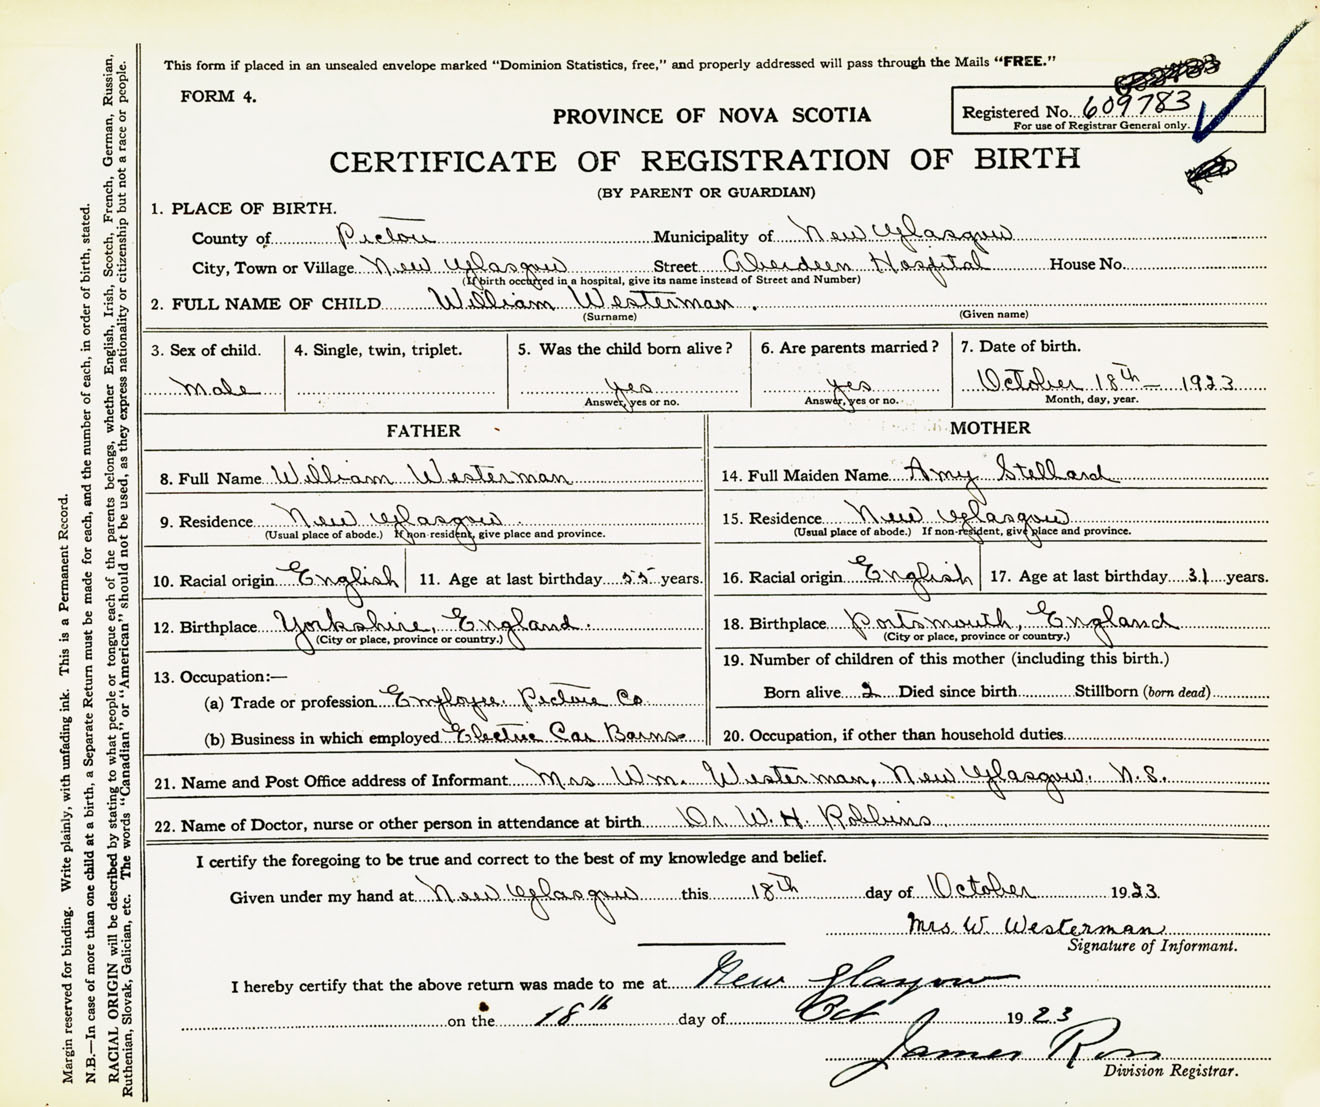 This form if placed in an unsealed envelope marked "Dominion Statistics, free," and properly addressed will pass through the Mails "FREE."
FORM 4.
PROVINCE OF NOVA SCOTIA
Registered No. 609783
For use of Registrar General only.
CERTIFICATE OF REGISTRATION OF BIRTH
(BY PARENT OR GUARDIAN)
1. PLACE OF BIRTH.
County of Pictou Municipality of New Glasgow
City, Town or Village New Glasgow Street Aberdeen Hospital House No.
(If birth occurred in a hospital, give its name instead of Street and Number)
2. FULL NAME OF CHILD William Westerman.
(Surname) (Given name)
3. Sex of child. 4. Single, twin, triplet. 5. Was the child born alive? 6. Are parents married? 7. Date of birth.
Male yes yes October 18th – 1923
Answer, yes or no. Answer, yes or no. Month, day, year.
FATHER MOTHER
8. Full Name William Westerman 14. Full Maiden Name Amy Stellard
9. Residence New Glasgow. 15. Residence New Glasgow
(Usual place of abode.) If non-resident, give place and province. (Usual place of abode.) If non-resident, give place and province.
10. Racial origin English 11. Age at last birthday 55 years. 16. Racial origin English 17. Age at last birthday 31 years.
12. Birthplace Yorkshire, England. 18. Birthplace Portsmouth, England
(City or place, province or country.) (City or place, province or country.)
19. Number of children of this mother (including this birth.)
13. Occupation:—
(a) Trade or profession Employee. Pictou Co. Born alive 2 Died since birth Stillborn (born dead)
(b) Business in which employed Electric Car Barns 20. Occupation, if other than household duties
21. Name and Post Office address of Informant Mrs Wm. Westerman, New Glasgow. N.S.
22. Name of Doctor, nurse or other person in attendance at birth Dr. W. H. Robbins
I certify the foregoing to be true and correct to the best of my knowledge and belief.
Given under my hand at New Glasgow this 18th day of October 1923.
Mrs. W. Westerman
Signature of Informant.
I hereby certify that the above return was made to me at New Glasgow
on the 18th day of Oct 1923
James Ross
Division Registrar.
Margin reserved for binding. Write plainly, with unfading ink. This is a Permanent Record.
N.B.—In case of more than one child at a birth, a Separate Return must be made for each, and the number of each, in order of birth, stated.
RACIAL ORIGIN will be described by stating to what people or tongue each of the parents belongs, whether English, Irish, Scotch, French, German, Russian,
Ruthenian, Slovak, Galician, etc. The words "Canadian" or "American" should not be used, as they express nationality or citizenship but not a race or people.